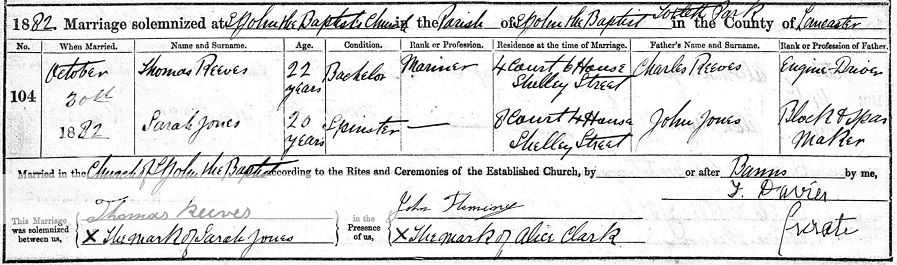 1882. Marriage solemnized at St John the Baptists Church in the Parish of St John the Baptist Toxteth Park in the County of Lancaster
No. When Married. Name and Surname. Age. Condition. Rank or Profession. Residence at the time of Marriage. Father's Name and Surname. Rank or Profession of Father.
104
October 30th 1882
Thomas Reeves 22 years Bachelor Mariner 4 Court 6 House Shelley Street Charles Reeves Engine-Driver
Sarah Jones 20 years Spinster — 8 Court 4 House Shelley Street John Jones Block & Spar Maker
Married in the Church of St John the Baptist according to the Rites and Ceremonies of the Established Church, by or after Banns by me,
This Marriage was solemnized between us, Thomas Reeves
X The mark of Sarah Jones
in the Presence of us, John Fleming
X The mark of Alice Clark.
J. Davies
Curate